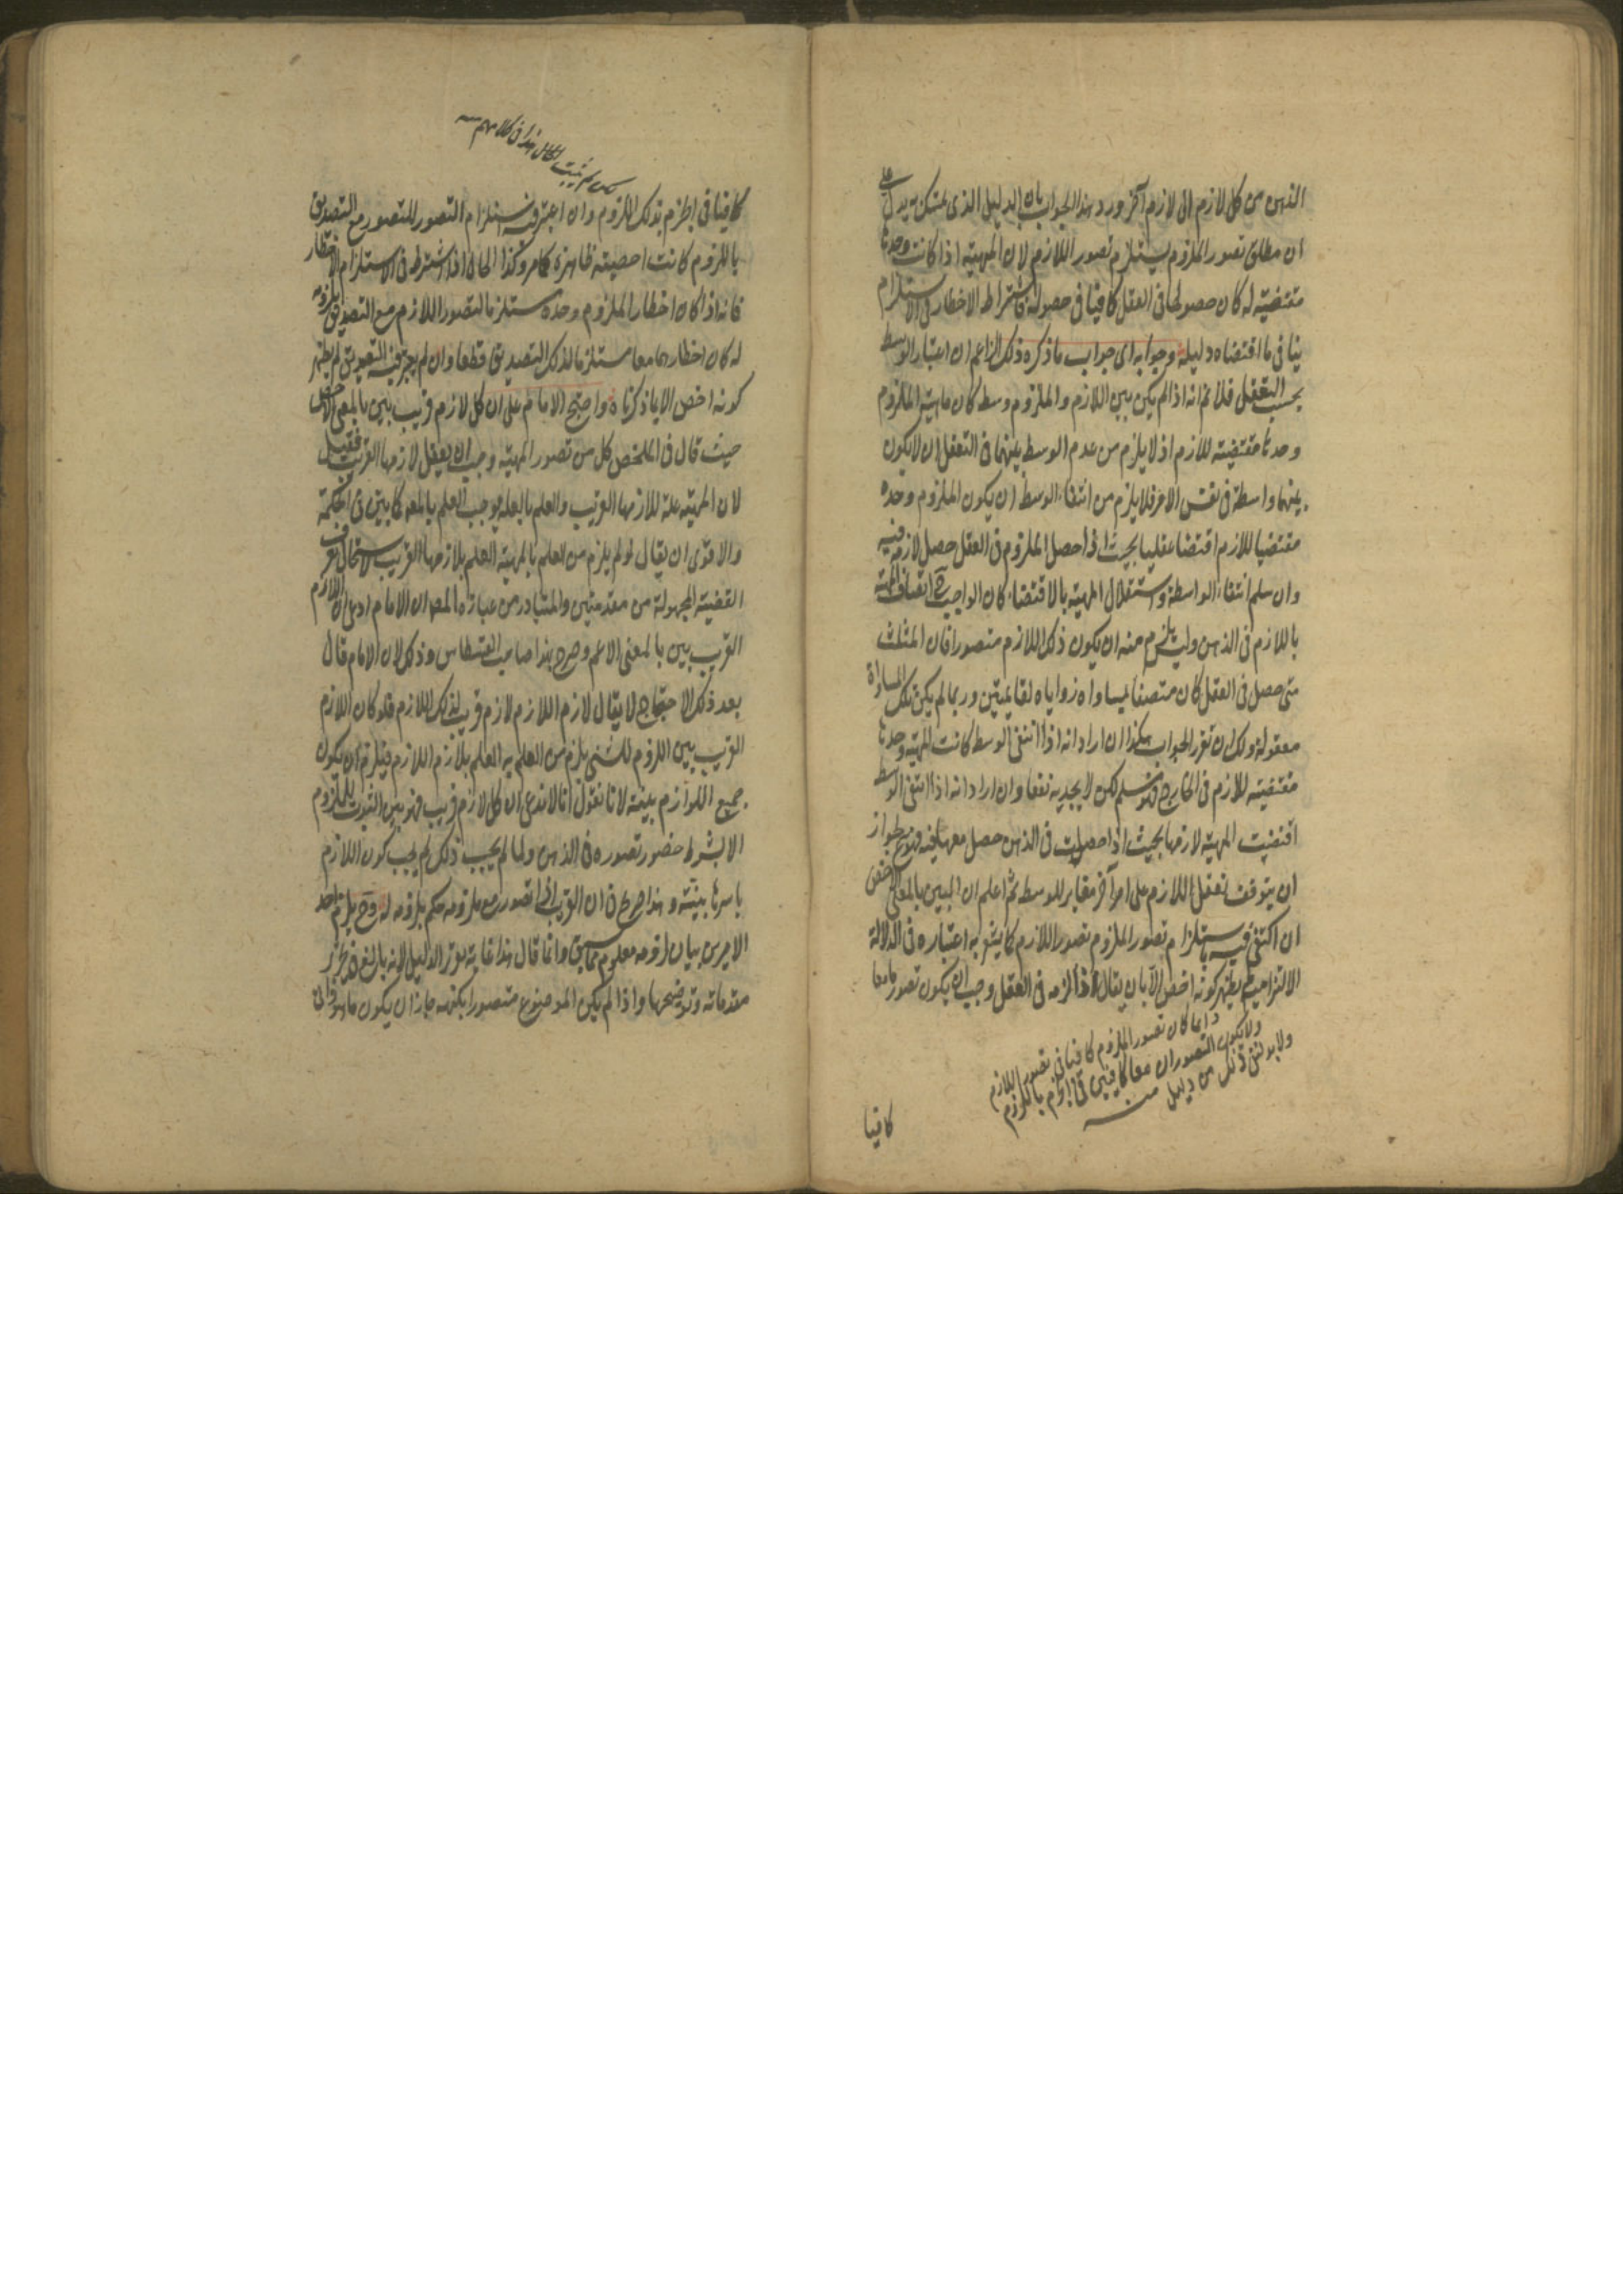 الذهن من كل لازم الى لازم آخر ورد هذا الجواب بان الدليل الذى تمسك به يدل على
ان مطلق تصور الملزوم يستلزم تصور اللازم لان المهية اذا كانت وحدها
مقتضية له كان حصولها فى العقل كافيا فى حصوله فاشتراط الاخطار فى الاستلزام
ينافى ما اقتضاه دليله وجوابه اى جواب ما ذكره ذلك الزاعم ان اعتبار الوسط
بحسب التعقل فلانم انه اذا لم يكن بين اللازم والملزوم وسط كان ماهية الملزوم
وحدها مقتضية للازم اذ لا يلزم من عدم الوسط بينهما فى التعقل ان لا يكون
بينهما واسطة فى نفس الامر فلا يلزم من انتفاء الوسط ان يكون الملزوم وحده
مقتضيا للازم اقتضا عقليا بحيث اذا حصل الملزوم فى العقل حصل لازمه فيه
وان سلم انتفاء الواسطة واستقلال المهية بالاقتضاء كان الواجب ح اتصاف المهية
باللازم فى الذهن وليس يلزم منه ان يكون ذلك اللازم متصورا فان المثلث
متى حصل فى العقل كان متصفا بمساواة زواياه لقائمتين وربما لم يكن تلك المساواة
معقولة ولك ان تقرر الجواب هكذا ان اراد انه اذا انتفى الوسط كانت المهية وحدها
مقتضية للازم فى الخارج فهو مسلم لكن لا يجديه نفعا وان اراد انه اذا انتفى الوسط
اقتضت المهية لازمها بحيث اذا حصلت فى الذهن حصل معها فيه فهو مم لجواز
ان يتوقف تعقل اللازم على امر آخر مغاير للوسط ثم اعلم ان البين بالمعنى الاخص
ان اكتفى فيه باستلزام تصور الملزوم تصور اللازم كما يشهر به اعتباره فى الدلالة
الالتزامية لم يظهر كونه اخص الا بان يقال اذا لزمه فى العقل وجب ان يكون تصورهما معا
دايما كان تصور الملزوم كافيا فى تصور اللازم
ولا يكون التصوران معا كافيين فى الجزم باللزوم
ولا بد لنفى ذلك من دليل منه
كافيا
لكن لم يثبت هذا فى كلامهم
كافيا فى الجزم بذلك اللزوم وان اعتبر فيه استلزام التصور للتصور مع التصديق
باللزوم كانت اخصيته ظاهرة كما مر وكذا الحال اذا اشترط فى الاستلزام الاخطار
فانه اذا كان اخطار الملزوم وحده مستلزما لتصور اللازم مع التصديق بلزومه
له كان اخطارهما معا مستلزما لذلك التصديق قطعا وان لم يعتبر فيه التصديق لم يظهر
كونه اخص الا بما ذكرناه واحتج الامام على ان كل لازم قريب بين بالمعنى الاخص
حيث قال فى الملخص كل من تصور المهية وجب ان يعقل لازمها القريب
لان المهية علة للازمها القريب والعلم بالعلة يوجب العلم بالمعلول كما بين فى الحكمة
والاقوى ان يقال لو لم يلزم من العلم بالمهية العلم بلازمها القريب لاستحال تعرف
القضية المجهولة من مقدمتين والمتبادر من عبارة المص ان الامام ادعى ان اللازم
القريب بين بالمعنى الاعم وصرح بهذا صاحب القسطاس وذلك لان الامام قال
بعد ذلك الاحتجاج لا يقال لازم اللازم لازم قريب لذلك اللازم فلو كان اللازم
القريب بين اللزوم للشئ يلزم من العلم به العلم بلازم اللازم فيلزم ان يكون
جميع اللوازم بينة لانا نقول انا لا ندعى ان كل لازم قريب فهو بين الثبوت للملزوم
الا بشرط حضور تصوره فى الذهن ولما لم يجب ذلك لم يجب كون اللازم
باسرها بينة وهذا صريح فى ان القريب اذا تصور مع ملزومه حكم بلزومه له وح يلزم احد
الامرين بيان لزومه معلوم مما سبق وانما قال هذا غاية تقرير الدليل لانه بالغ فى تحرير
مقدماته وتوضيحها واذا لم يكن الموضوع متصورا بكنهه جاز ان يكون ما هو ذاتى